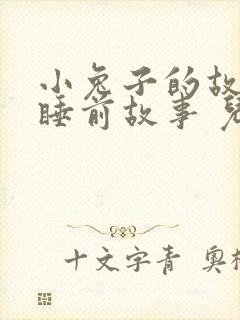 小兔子的故
睡前故事
十文字青 奥